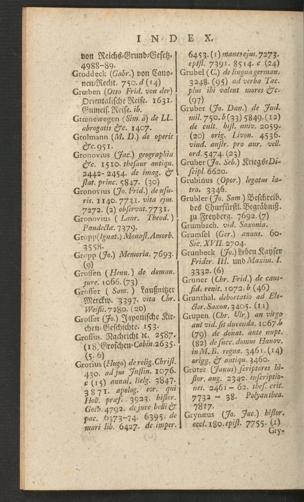 INDEX.
von Reichs-Grund-Gesetz.
4988-89.
Groddeck (Gabr.) von Cano-
nen-Recht. 750. d (14)
Grœben (Otto Frid. von der)
Orientalische Reise. 1631.
Guineis. Reise. ib.
Grœnewegen (Sim. à) de LL.
abrogatis &c. 1407.
Grolmann (M. D.) de operis
&c. 951.
Gronovius (Jac.) geographia
&c. 1510. thesaur. antiqu.
2442-2454. de imag. &
stat. princ. 5847. (30)
Gronovius (Jo. Frid.) de usu-
ris. 1140. 7731. vita ejus
7272. (2) observat. 7731.
Gronovius (Laur. Theod.)
Pandectæ. 7379.
Gropp (Ignat.) Monast. Amorb.
3558.
Gropp (Jo.) Memoria. 7693.
(9)
Grossen (Henn.) de damn.
jure. 1066. (73)
Grosser (Sam.) Lausnitzer
Merckw. 3397. vita Chr.
Weisii. 7280. (20)
Grosser (Jo.) Japanische Kir-
chen-Geschichte. 153.
Grossin. Nachricht &c. 2587.
(18) Groschen-Cabin. 2635.
(5. 6)
Grotius (Hugo) de relig. Christ.
430. ad jus Justin. 1076.
c (15) annal. Belg. 3847.
3871. apolog. eor. qui
Holl. præf. 3923. histor.
Goth. 4792. de jure belli &
pac. 6373-74. 6395. de
mari lib. 6427. de imper.
6453. (1) manes ejus. 7273.
epist. 7391. 8514. c (24)
Grubel (C.) de lingua german.
3248. (95) ad verba Tac.
plus ibi valent mores &c.
(97)
Gruber (Jo. Dan.) de Jud.
mil. 750. b (33) 5849. (12)
de cult. bist. univ. 2059.
(20) orig. Livon. 4536.
vind. austr. pro aur. vell.
ord. 5474 (23)
Gruber (Jo. Seb.) Kriegs-Di-
scipl. 6620.
Grubinius (Opor.) legatus la-
tro. 3346.
Grubler (Jo. Sam.) Beschreib.
des Churfürstl. Begräbniß.
zu Freyberg. 7692. (7)
Grumbach. vid. Saxonia.
Grumsel (Ger.) annus. 60.
Sæc. XVII. 2704.
Grunbeck (Jo.) Leben Kayser
Frider. III. und Maxim. I.
3332. (6)
Gruner (Chr. Frid.) de caus-
sid. renit. 1072. b (46)
Grunthal. dehortatio ad Ele-
ctor. Saxon. 3405. (11)
Grupen (Chr. Ulr.) an virgo
aut vid. sit ducenda. 1067. b
(79) de donat. ante nupt.
(82) de succ. domin Hanov.
in M. B. regno. 3461. (14)
origg. & antiqu. 3460.
Gruter (Janus) scriptores hi-
stor. aug. 2342. inscriptio-
nes. 2461-62. thes. crit.
7732-38. Polyanthea.
7817.
Grynæus (Jo. Jac.) histor.
eccl. 180. epist. 7755. (1)
Gry-